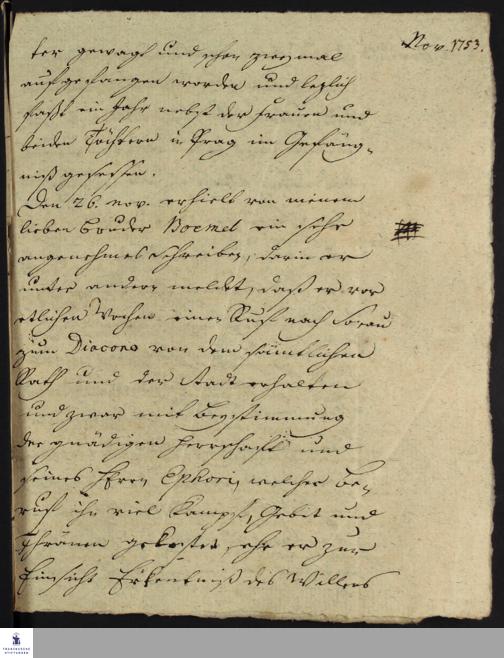 Nov. 1753.
ter gewagt und schon zweymal
aufgefangen worden und letzlich
fast ein Jahr nebst der Frauen und
beiden Töchtern in Prag im Gefäng-
niß gesessen.
Den 26. nov. erhielt von meinem
lieben Bruder Boemel ein sehr
angenehmes Schreiben, darin er
unter andern meldet, daß er vor
etlichen Wochen einen Ruf nach Sorau
zum Diacono von dem sämtlichen
Rath und der Stadt erhalten
und zwar mit Beystimmung
der gnädigen Herrschafft und
seines Herrn Ephori, welcher Be-
ruf ihn viel Kampf, Gebet und
Thränen gekostet, ehe er zur
Einsicht Erkentniß des Willens
FRANCKESCHE
STIFTUNGEN